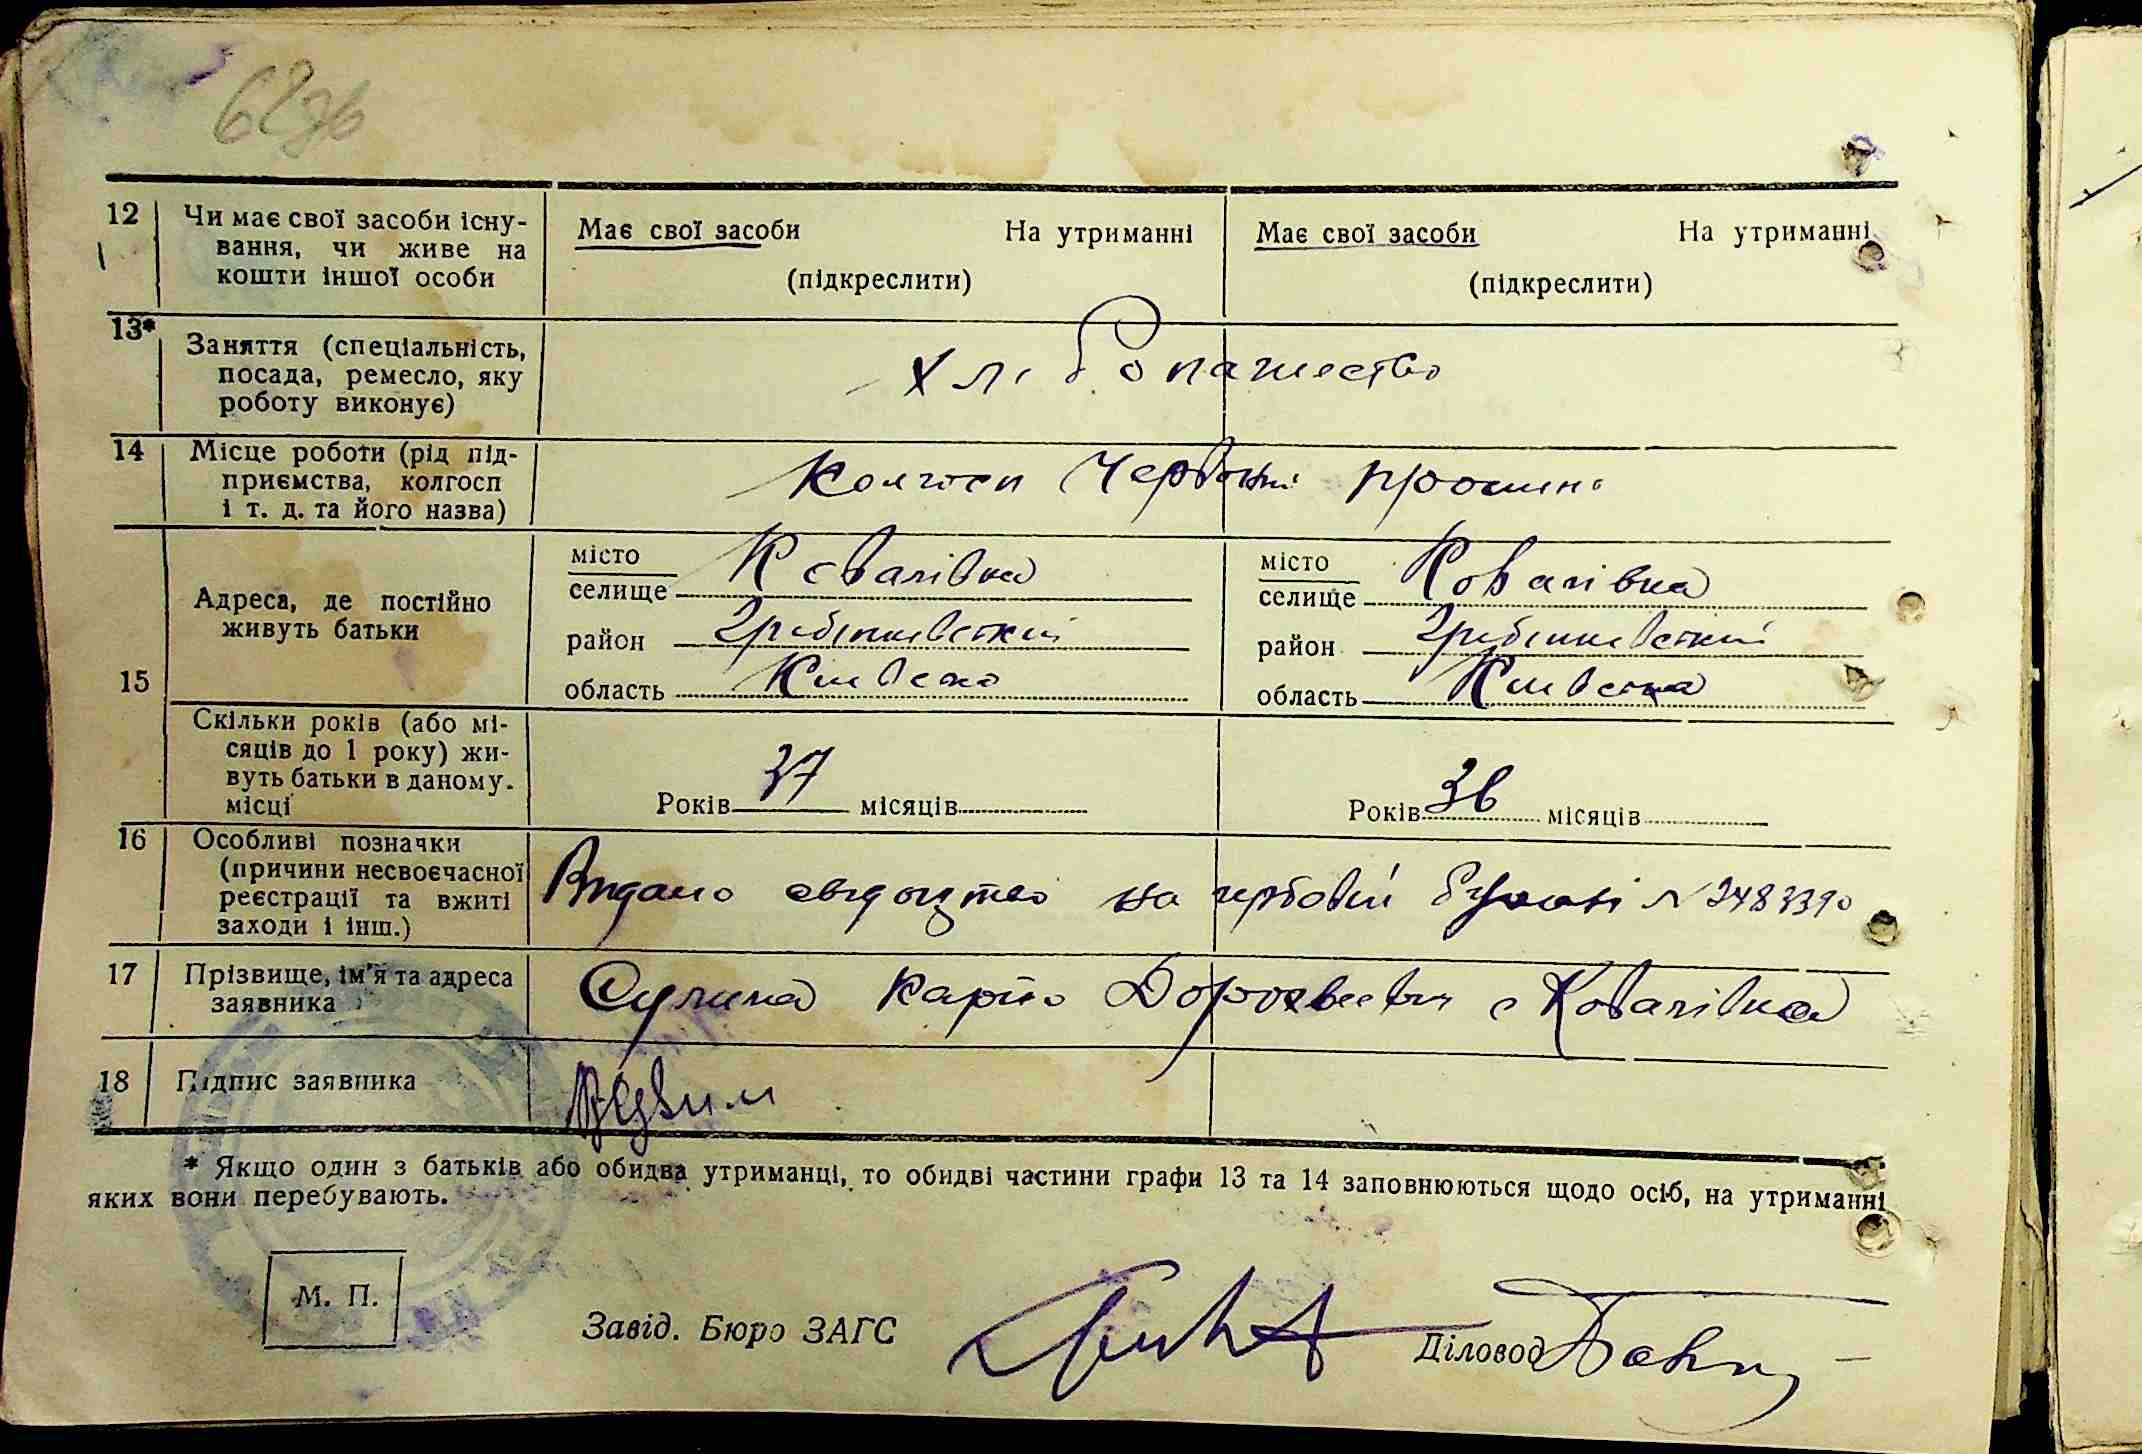 62зв
12 Чи має свої засоби існу-
вання, чи живе на
кошти іншої особи
Має свої засоби На утриманні Має свої засоби На утриманні
(підкреслити) (підкреслити)
13* Заняття (спеціальність,
посада, ремесло, яку
роботу виконує)
Хлібопашество
14 Місце роботи (рід під-
приємства, колгосп
і т. д. та його назва)
Колгосп Червоний
15 Адреса, де постійно
живуть батьки
місто
селище Ковалівка
район Гребінківський
область Київська
місто
селище Ковалівка
район Гребінківський
область Київська
Скільки років (або мі-
сяців до 1 року) жи-
вуть батьки в даному.
місці
Років 37 місяців Років 36 місяців
16 Особливі позначки
(причини несвоєчасної
реєстрації та вжиті
заходи і інш.)
Видано свідоцтво на гербовій N 2483390
17 Прізвище, ім'я та адреса
заявника
Сулима Карпо с Ковалівка
18 Підпис заявника
* Якщо один з батьків або обидва утриманці, то обидві частини графи 13 та 14 заповнюються щодо осіб, на утриманні
яких вони перебувають.
М. П.
Завід. Бюро ЗАГС Діловод